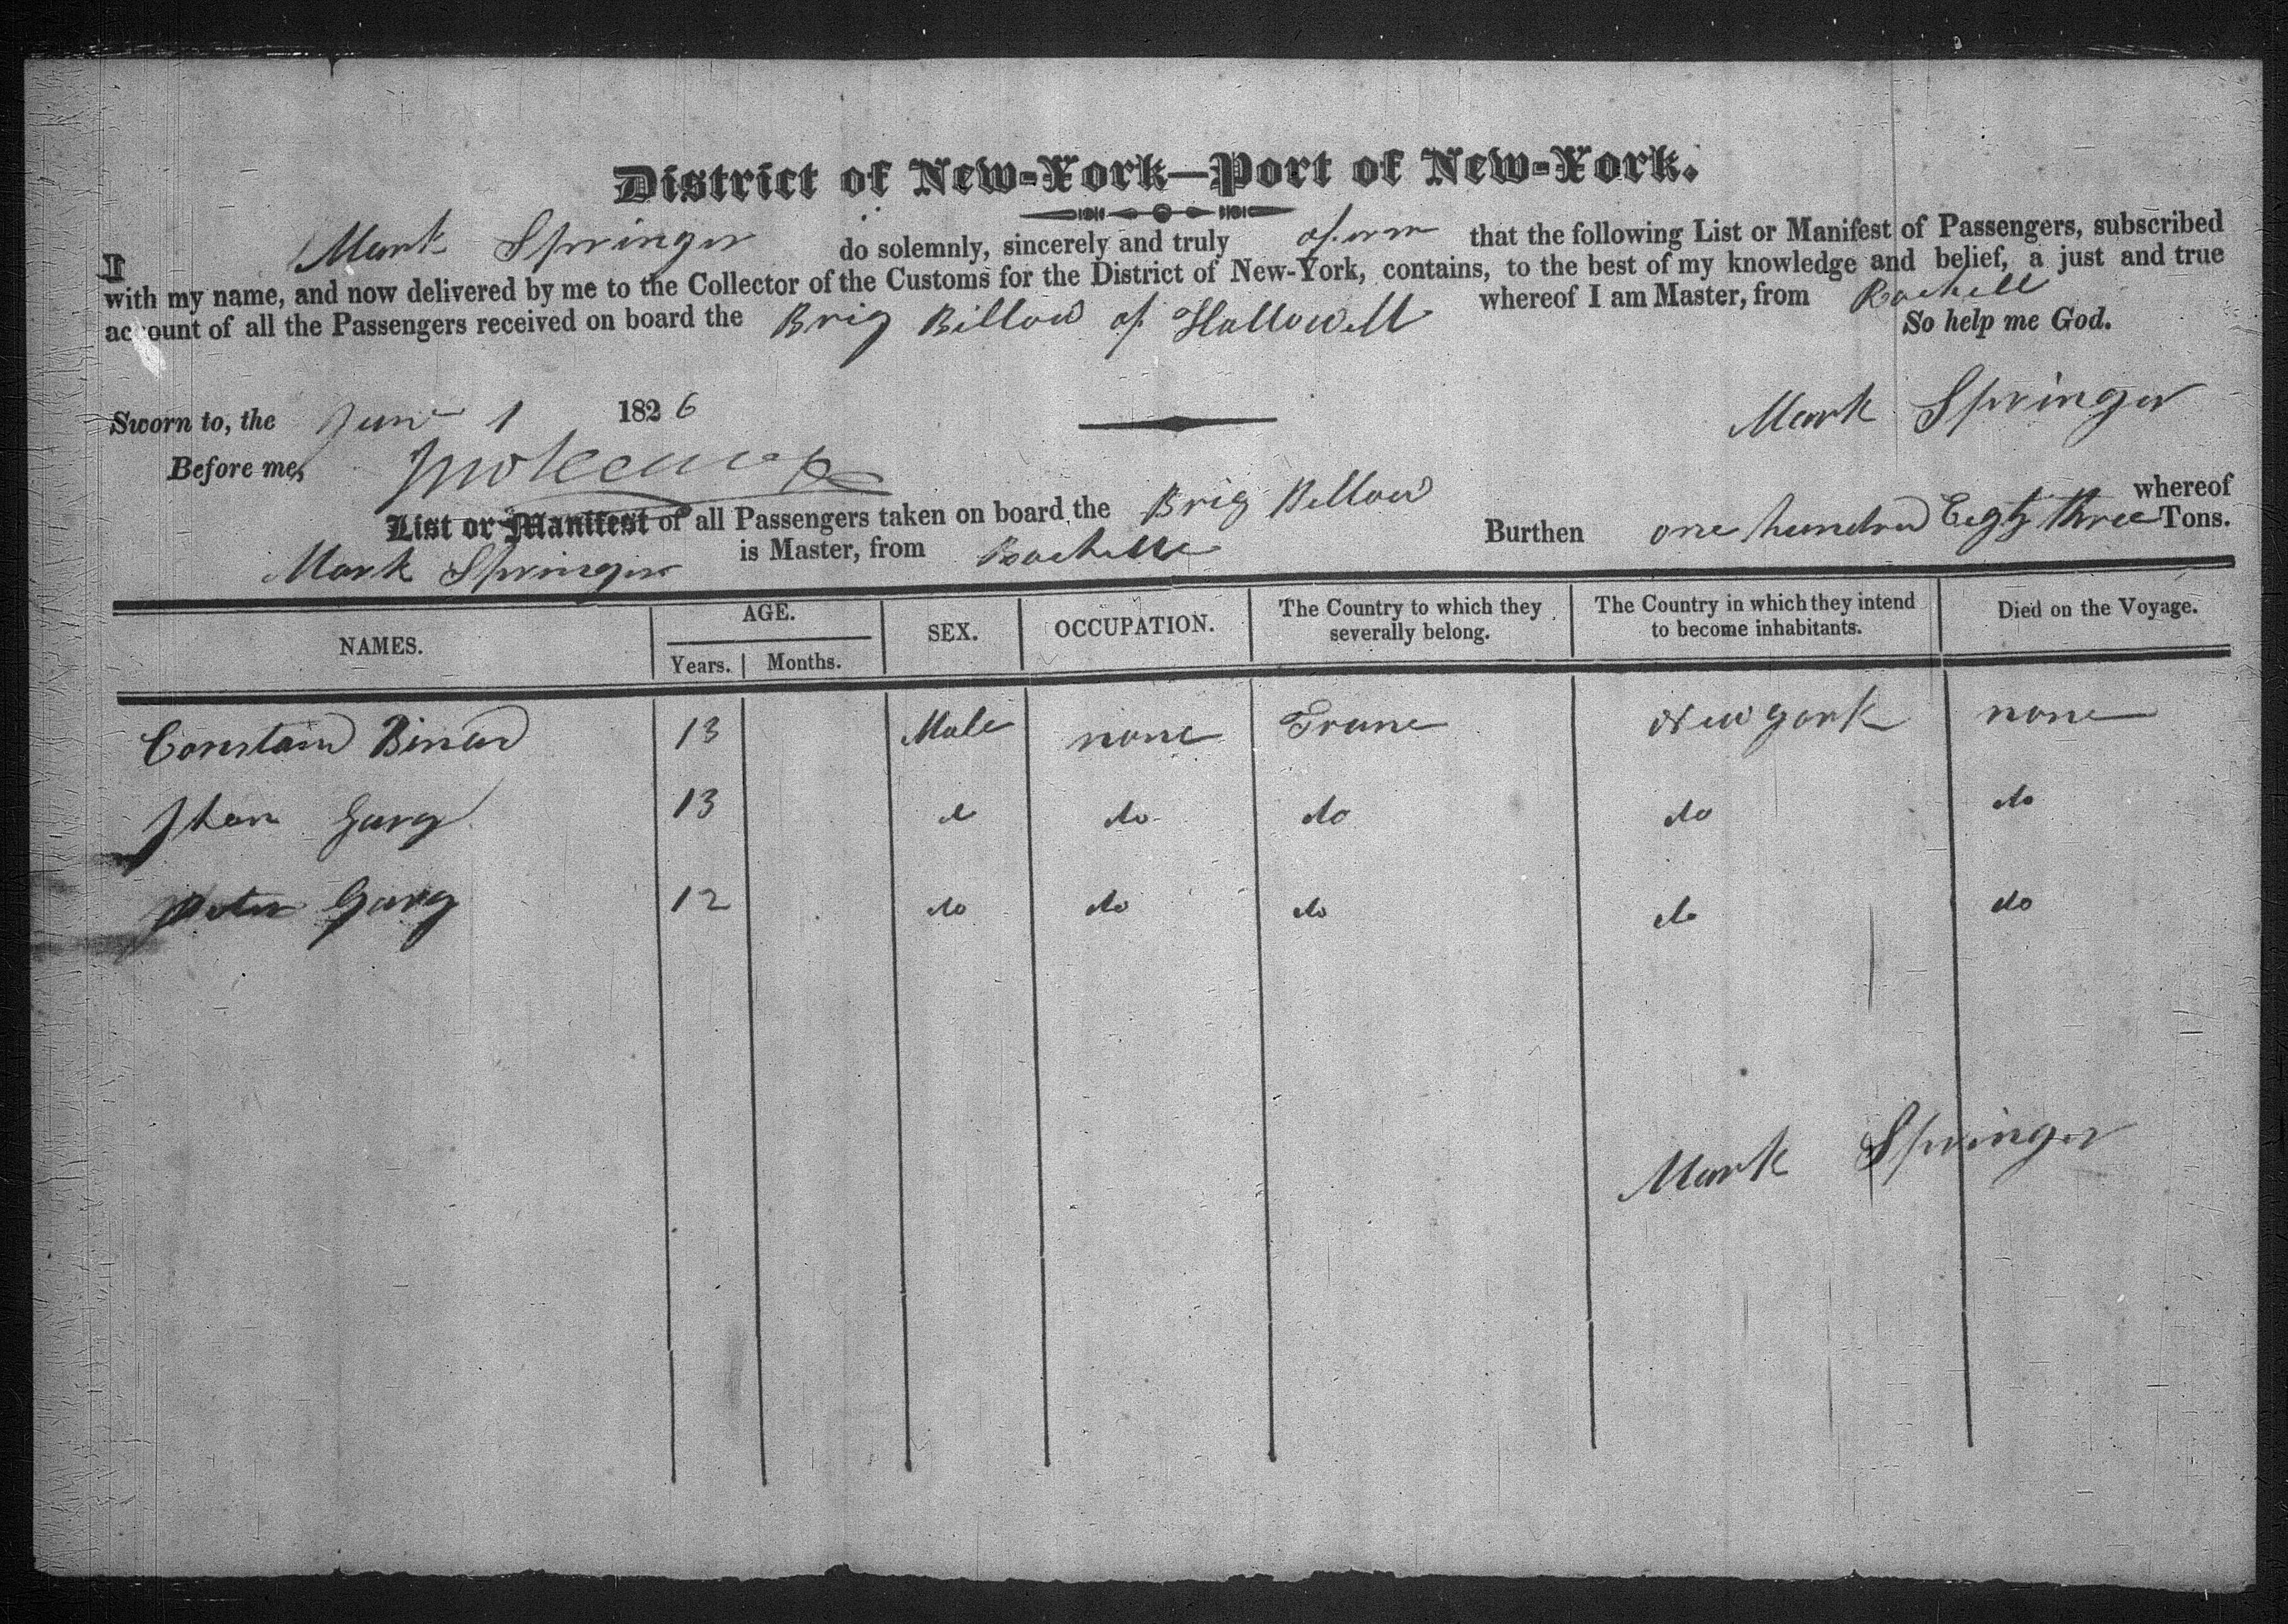 District of New-York—Port of New-York.
I Mark Springer do solemnly, sincerely and truly afirm that the following List or Manifest of Passengers, subscribed
with my name, and now delivered by me to the Collector of the Customs for the District of New-York, contains, to the best of my knowledge and belief, a just and true
account of all the Passengers received on board the Brig Billow of Hallowell whereof I am Master, from Rochell
So help me God.
Sworn to, the June 1 1826
Mark Springer
Before me,
List or Manifest of all Passengers taken on board the Brig Billow whereof
Mark Springer is Master, from Rochelle Burthen one hundred Eigty three Tons.
NAMES. AGE. Years. Months. SEX. OCCUPATION. The Country to which they severally belong. The Country in which they intend to become inhabitants. Died on the Voyage.
13 Male none France New york none
13 do do do do
Peter 12 do do do do do
Mark Springer